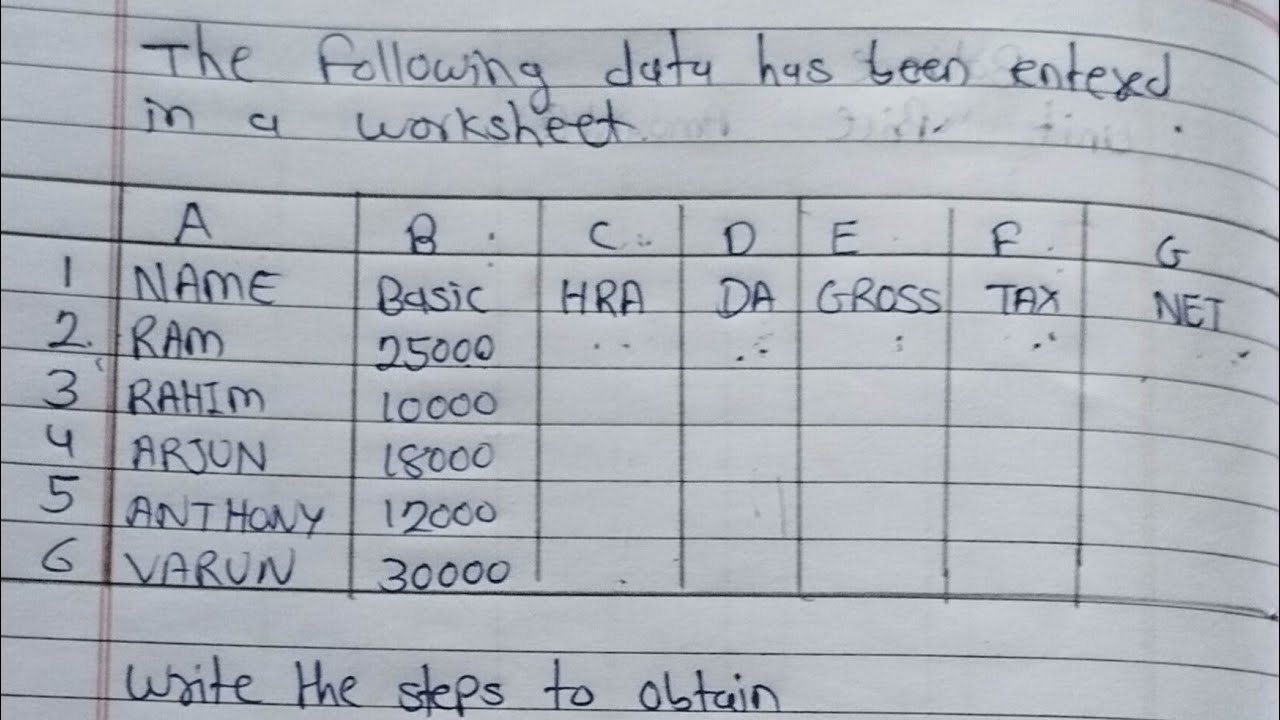 The following data has been entered
in a worksheet.
A B C D E F G
1 NAME Basic HRA DA GROSS TAX NET
2. RAM 25000
3 RAHIM 10000
4 ARJUN 18000
5 ANTHONY 12000
6 VARUN 30000
Write the steps to obtain